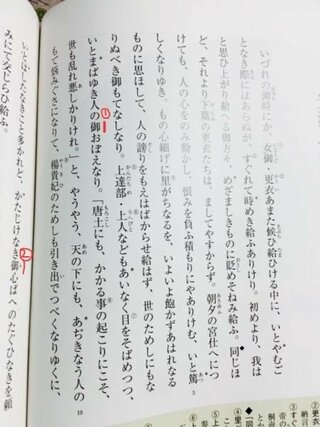 いづれの御時にか、女御、更衣あまた候ひ給ひける中に、いとやむご
となき際にはあらぬが、すぐれて時めき給ふありけり。初めより、我は
と思ひ上がり給へる御方々、めざましきものに貶めそねみ給ふ。同じほ
ど、それより下臈の更衣たちは、ましてやすからず。朝夕の宮仕へにつ
けても、人の心をのみ動かし、恨みを負ふ積もりにやありけむ、いと篤
しくなりゆき、もの心細げに里がちなるを、いよいよ飽かずあはれなる
ものに思ほして、人の謗りをもえはばからせ給はず、世のためしにもな
りぬべき御もてなしなり。上達部・上人などもあいなく目をそばめつつ、
①
いとまばゆき人の御おぼえなり。「唐土にも、かかる事の起こりにこそ、
世も乱れ悪しかりけれ。」と、やうやう、天の下にも、あぢきなう人の
もて悩みぐさになりて、楊貴妃のためしも引き出でつべくなりゆくに、
10
②
いとはしたなきこと多かれど、かたじけなき御心ばへのたぐひなきを頼
みにて交じらひ給ふ。